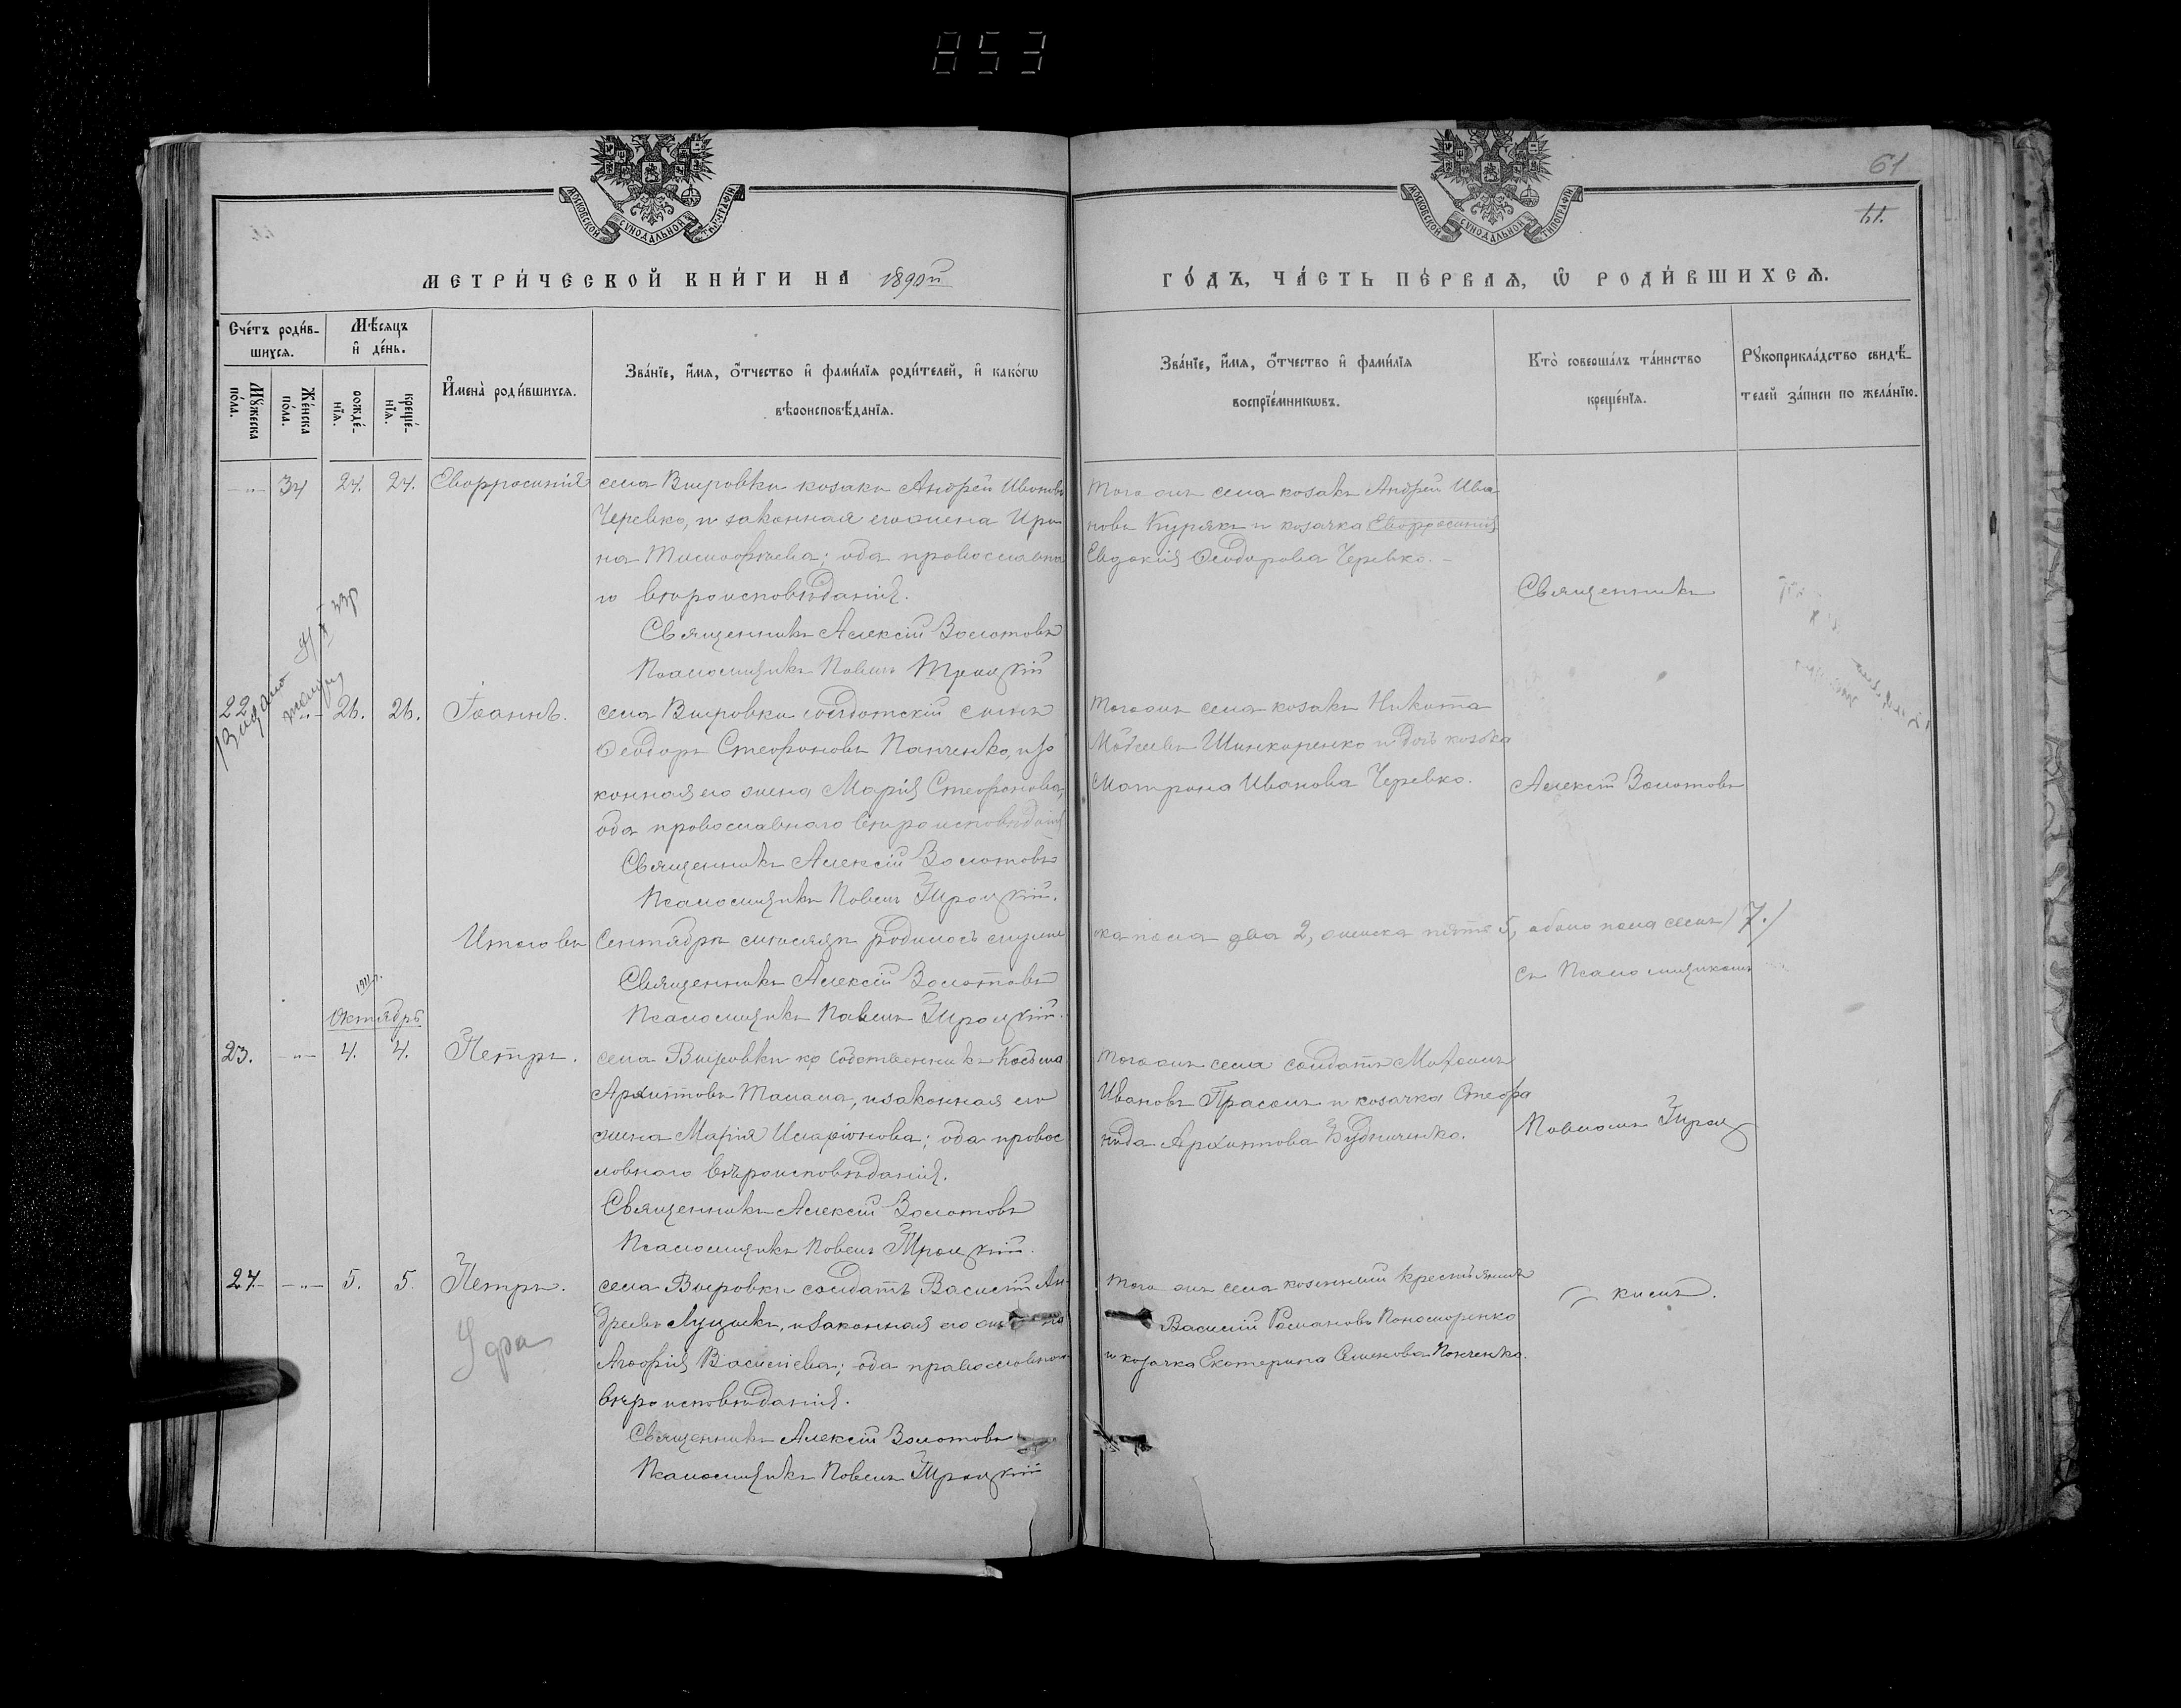 853
61
61.
МОСКОВСКОЙ СУНОДАЛЬНОЙ ТИПОГРАФІИ
МОСКОВСКОЙ СУНОДАЛЬНОЙ ТИПОГРАФІИ
МЕТРИ́ЧЕСКОЙ КНИ́ГИ НА 1890й
ГО́ДЪ, ЧА́СТЬ ПЕ́РВАѦ, Ѡ҆ РОДИ́ВШИХСѦ.
Сче́тъ роди́в-
шихсѧ.
Мѣ́сѧцъ
и҆ де́нь.
Мꙋ́жеска
по́ла.
Же́нска
по́ла.
рожде́-
нїѧ.
креще́-
нїѧ.
И҆мена̀ роди́вшихсѧ.
Зва́нїе, и҆́мѧ, ѻ҆́тчество и҆ фами́лїѧ роди́телей, и҆ како́гѡ
вѣроисповѣ́данїѧ.
Зва́нїе, и҆́мѧ, ѻ҆́тчество и҆ фами́лїѧ
воспрїе́мникѡвъ.
Кто̀ соверша́лъ та́инство
креще́нїѧ.
Рꙋкоприкла́дство свидѣ́-
телей за́писи по жела́нїю.
34 24. 24. Евфросинія
села Вировки козакъ Андрей Ивановъ
Черевко, и законная его жена Ири-
на Тимофѣева; оба православна-
го вѣроисповѣданія.
Священникъ Алексій Золотовъ
Псаломщикъ Павелъ Троицкій
того же села козакъ Андрей Ива-
новъ Курякъ и козачка Евфросинія
Евдокія Ѳеодорова Черевко.
Священникъ
Видано
22. 26. 26. Іоаннъ.
села Вировки солдатскій сынъ
Ѳеодоръ Стефановъ Панченко, и за-
конная его жена Марія Стефанова,
оба православнаго вѣроисповѣданія
Священникъ Алексій Золотовъ
Псаломщикъ Павелъ Троицкій.
того же села козакъ Никита
Моѵсеевъ Шинкаренко и дочь козака
Матрона Иванова Черевко.
Алексій Золотовъ
Итого въ Сентябрѣ мѣсяцѣ родилось мужес-
ка пола два 2, женска пять 5, обоего пола семь (7.)
Священникъ Алексій Золотовъ
Псаломщикъ Павелъ Троицкій.
съ Псаломщикомъ
Октябрь
23. 4. 4. Петръ.
села Вировки кр собственникъ Косьма
Архиповъ Талала, и законная его
жена Марія Иларіонова; оба правос-
лавнаго вѣроисповѣданія.
Священникъ Алексій Золотовъ
Псаломщикъ Павелъ Троицкій.
того же села солдатъ Михаилъ
Ивановъ Прасолъ и козачка Стефа-
нида Архипова Будниченко.
Павломъ Троиц-
24. 5. 5. Петръ.
села Вировки солдатъ Василій Ан-
дреевъ Луцыкъ, и законная его жена
Агафія Василіева; оба православнаго
вѣроисповѣданія.
Священникъ Алексій Золотовъ
Псаломщикъ Павелъ Троицкій
того же села козенный крестьянинъ
Василій Романовъ Пономаренко
и козачка Екатерина Семенова Панченко.
кимъ.